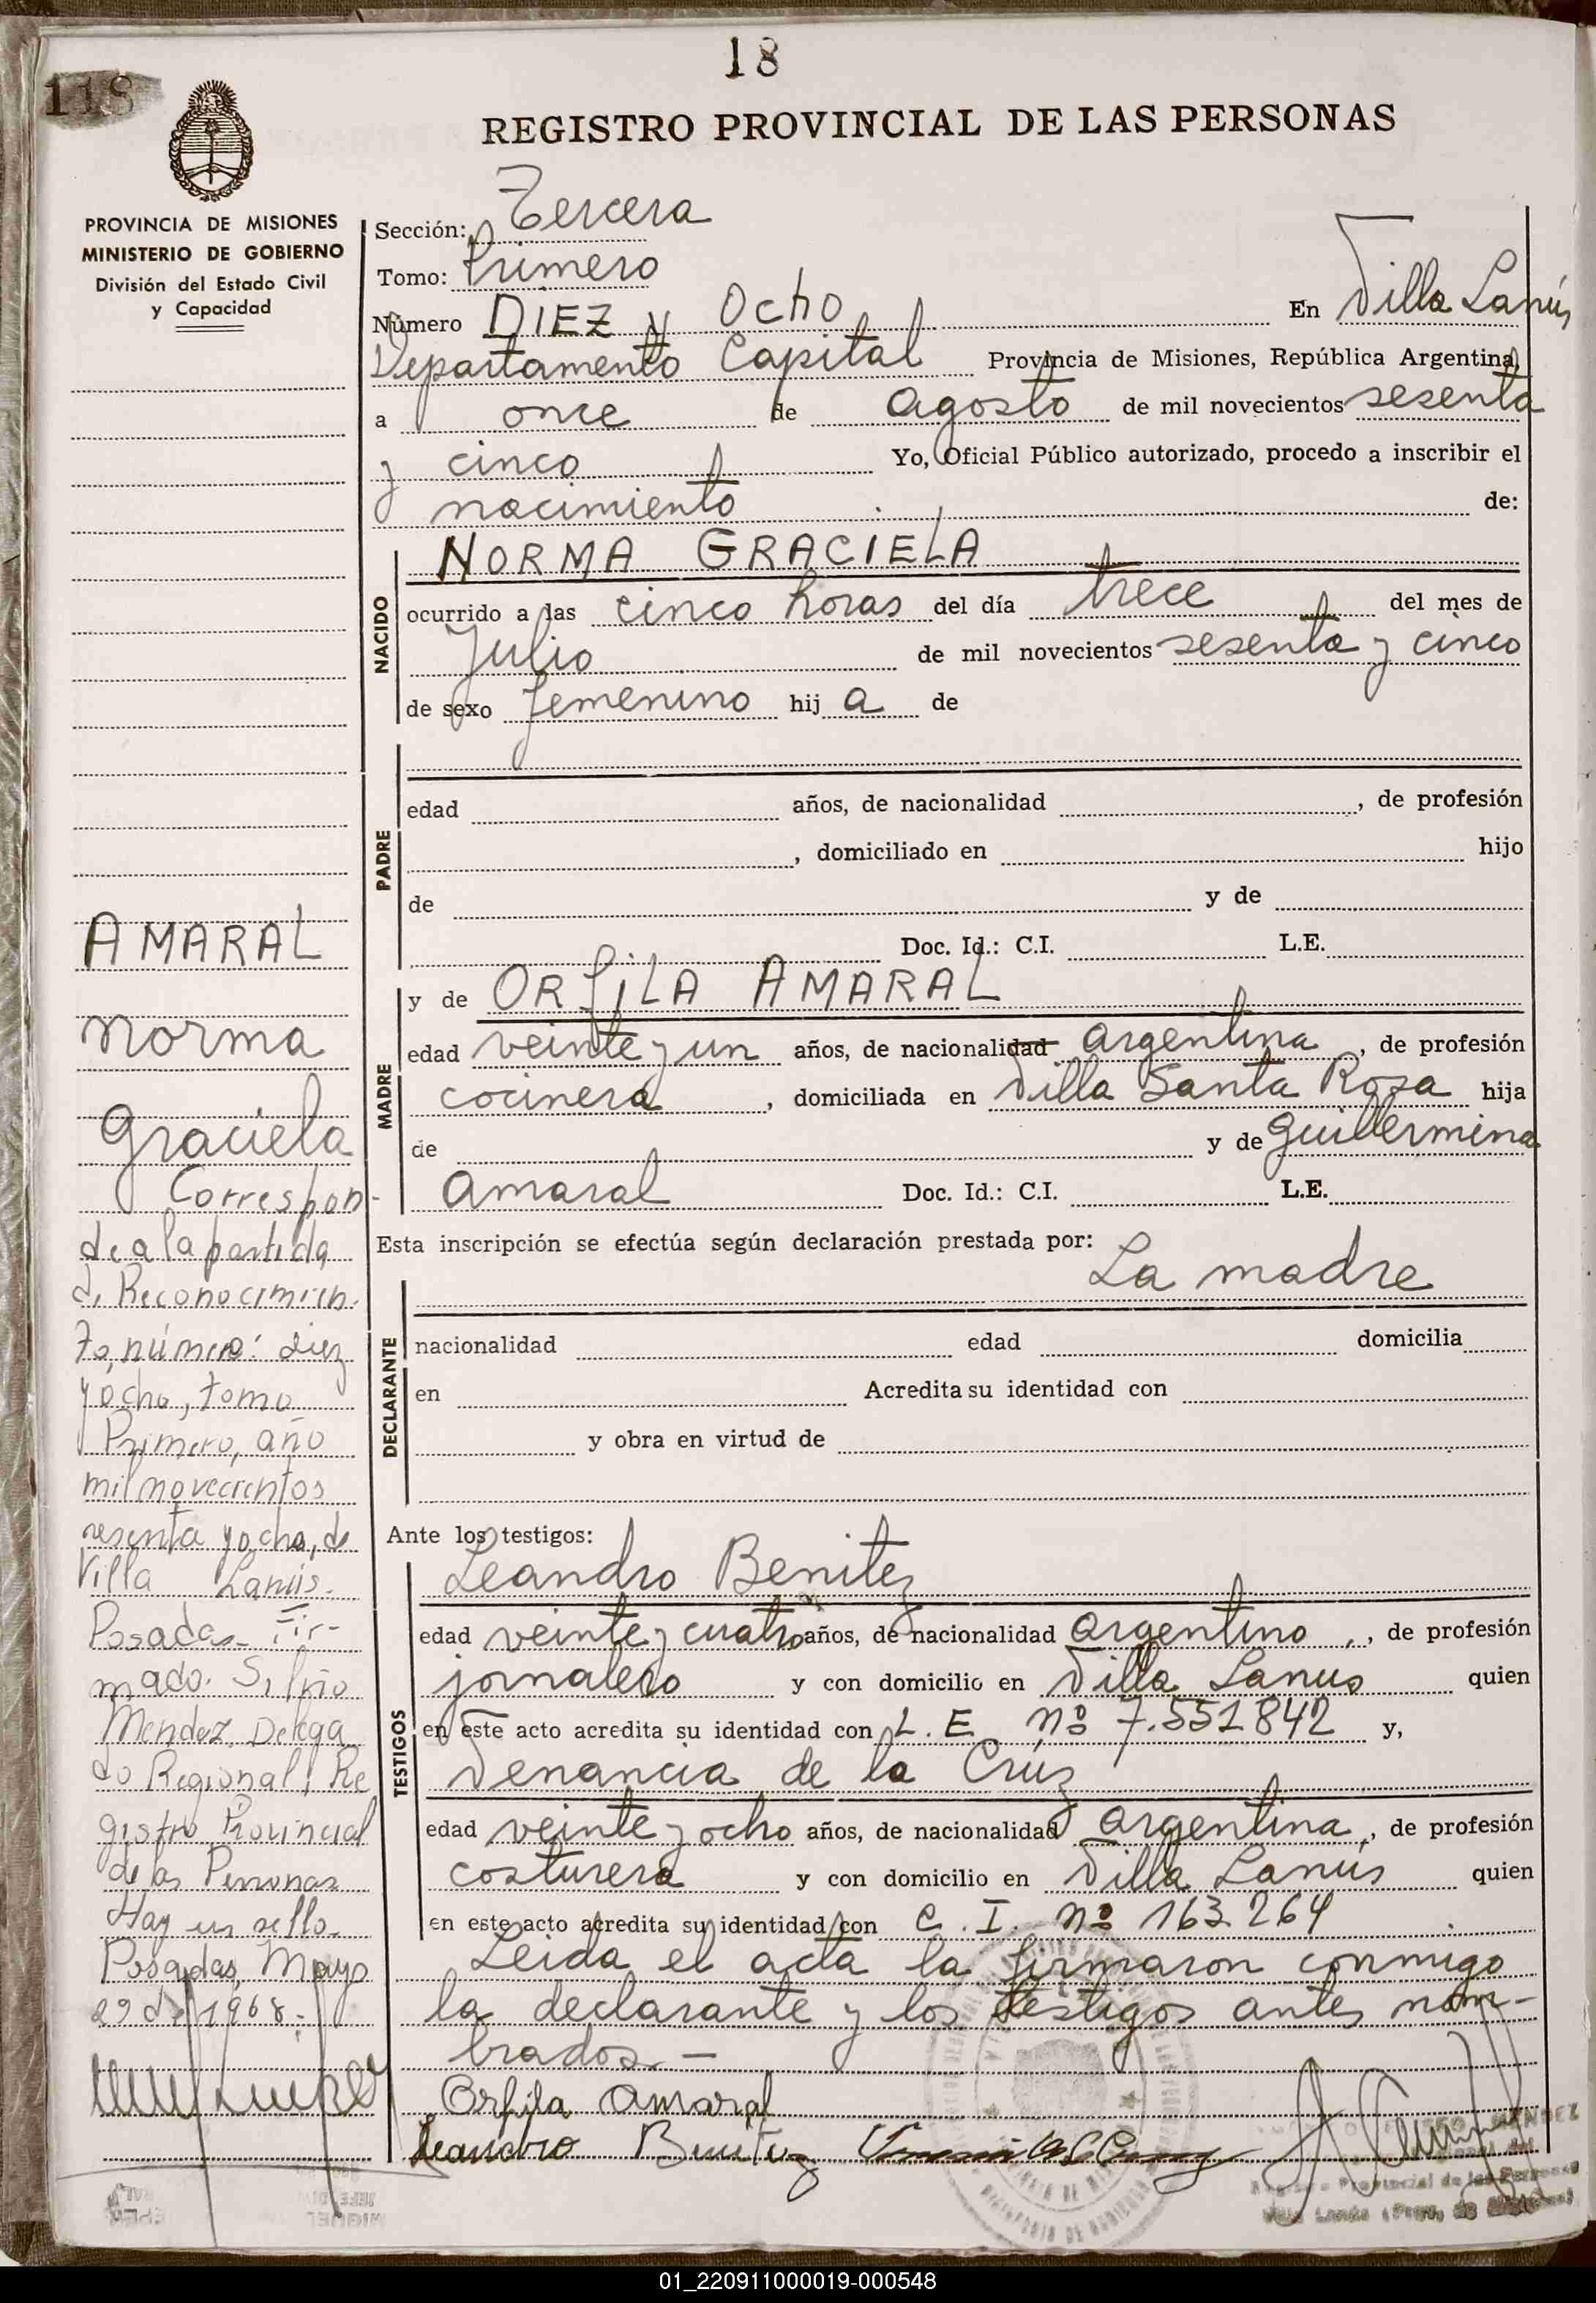 18
118
REGISTRO PROVINCIAL DE LAS PERSONAS
PROVINCIA DE MISIONES
MINISTERIO DE GOBIERNO
División del Estado Civil
y Capacidad
Sección: Tercera
Tomo: Primero
Número DIEZ y Ocho En Villa Lanús
Departamento Capital Provincia de Misiones, República Argentina,
a once de agosto de mil novecientos sesenta
y cinco Yo, Oficial Público autorizado, procedo a inscribir el
nacimiento de:
NACIDO
NORMA GRACIELA
ocurrido a las cinco horas del día trece del mes de
Julio de mil novecientos sesenta y cinco
de sexo femenino hij a de
PADRE
edad años, de nacionalidad , de profesión
, domiciliado en hijo
de y de
Doc. Id.: C.I. L.E.
MADRE
y de ORfiLA AMARAL
edad veinte y un años, de nacionalidad argentina, de profesión
cocinera, domiciliada en Villa Santa Rosa hija
de y de Guillermina
Amaral Doc. Id.: C.I. L.E.
Esta inscripción se efectúa según declaración prestada por:
La madre
DECLARANTE
nacionalidad edad domicilia
en Acredita su identidad con
y obra en virtud de
Ante los testigos:
TESTIGOS
Leandro Benitez
edad veinte y cuatro años, de nacionalidad argentino, de profesión
jornalero y con domicilio en Villa Lanus quien
en este acto acredita su identidad con L. E. nº 7.551842 y,
Venancia de la Cruz
edad veinte y ocho años, de nacionalidad argentina, de profesión
costurera y con domicilio en Villa Lanús quien
en este acto acredita su identidad con C. I. nº 163.264
Leida el acta la firmaron conmigo
la declarante y los testigos antes nom-
brados.-
Orfila Amaral
Leandro Benitez
AMARAL
Norma
Graciela
Correspon-
de a la partida
de Reconocimien-
to, número: diez
y ocho, tomo
Primero, año
mil novecientos
sesenta y ocho, de
Villa Lanús.
Posadas. Fir-
mado. Silvio
Mendez, Delega
do Regional, Re
gistro Provincial
de las Personas
Hay un sello.
Posadas, Mayo
29 de 1968.
MENDEZ
Provincial de las Personas
Villa Lanús (Prov. de Misiones)
01_220911000019-000548